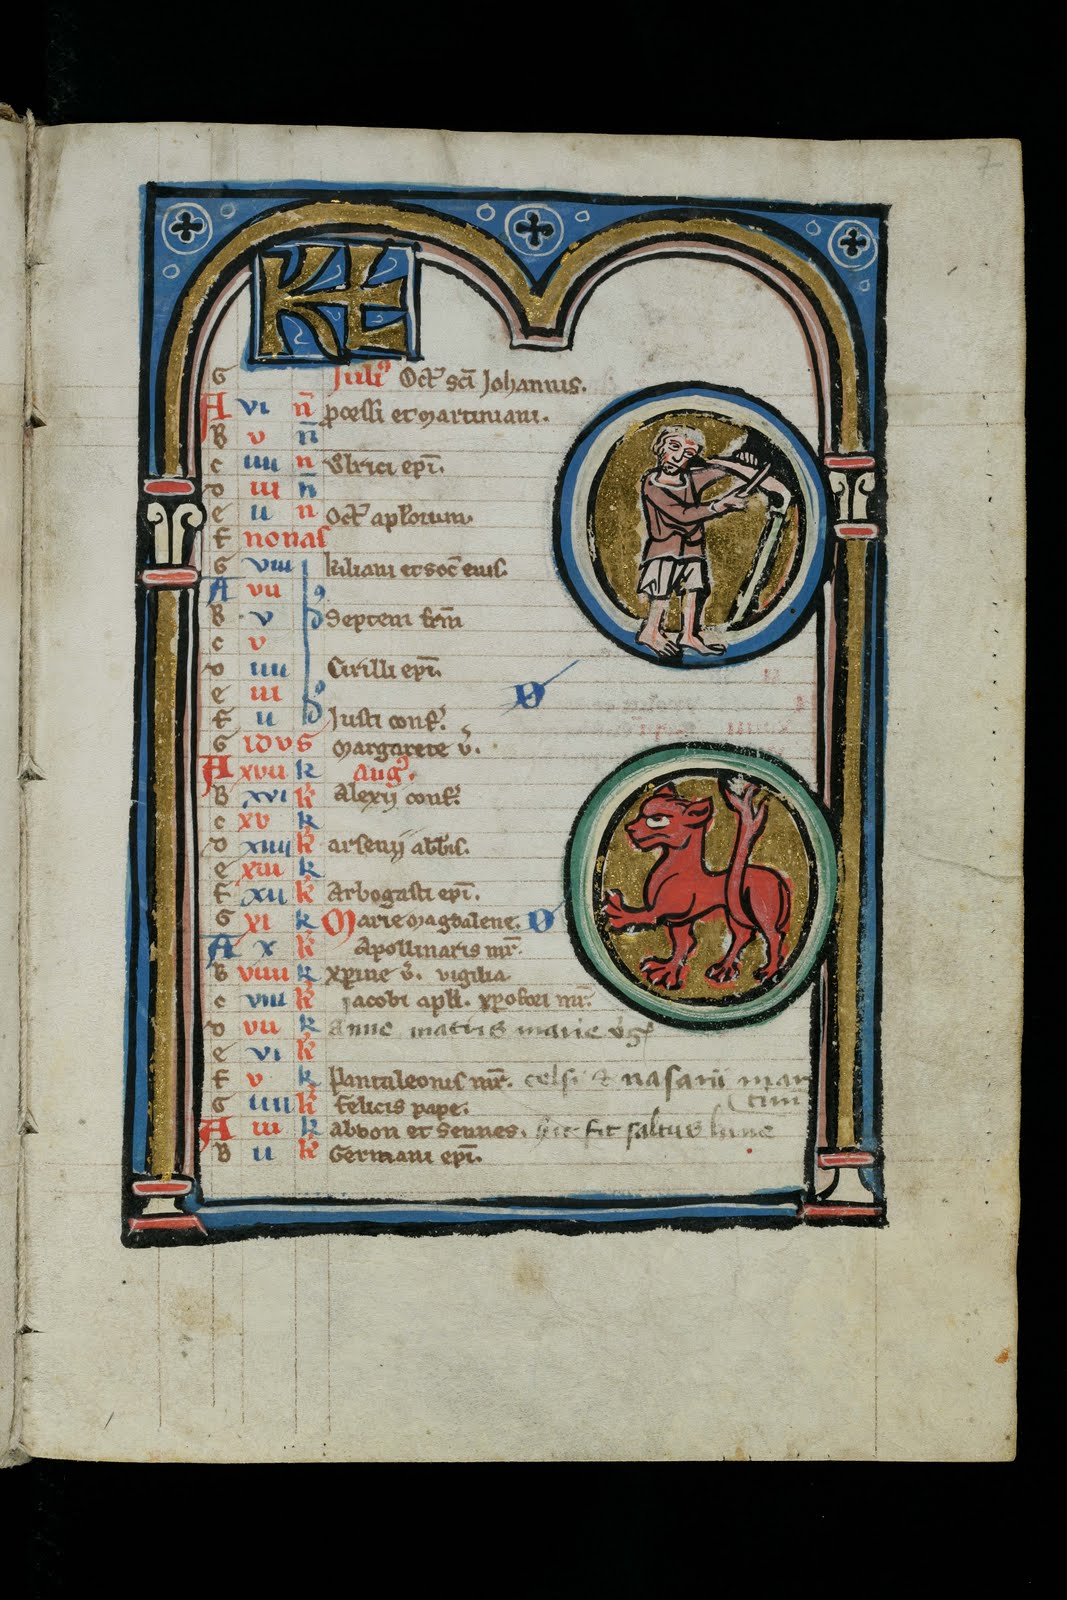 7
KL
G Juli9 Oct' sci Johannis.
A vi n̄ processi et martiniani.
B v n̄
c iiii n Ulrici epi.
D iii n̄
e ii n Oct' aplorum
F nonas
G viii kiliani et soc eius.
A vii
B v Septem frm
c v
D iiii Cirilli epi.
e iii
F ii Justi conf.
G idus Margarete v.
A xvii k Aug9.
B xvi k Alexij conf.
c xv k
D xiiii k arsenij abbis.
e xiii k
F xii k Arbogasti epi.
G xi k Marie magdalene.
A x k Apollinaris mr.
B viiii k xpine v. vigilia
c viii k Jacobi apli. xpofori mr.
D vii k Anne matris marie
e vi k
F v k Pantaleonis mr. celsi & nasarii mar
G iiii k felicis pape. tirū
A iii k Abdon et Sennes. hic fit saltus lune
B ii k Germani epi.